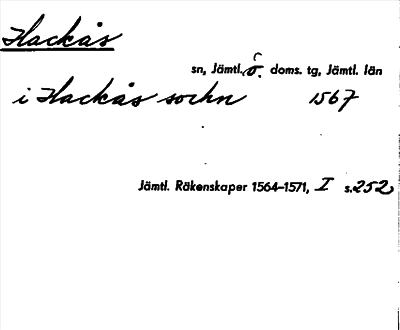 Hackås
sn, Jämtl. ö. doms. tg, Jämtl. län
i Hackås sockn 1567
Jämtl. Räkenskaper 1564–1571, I s. 252